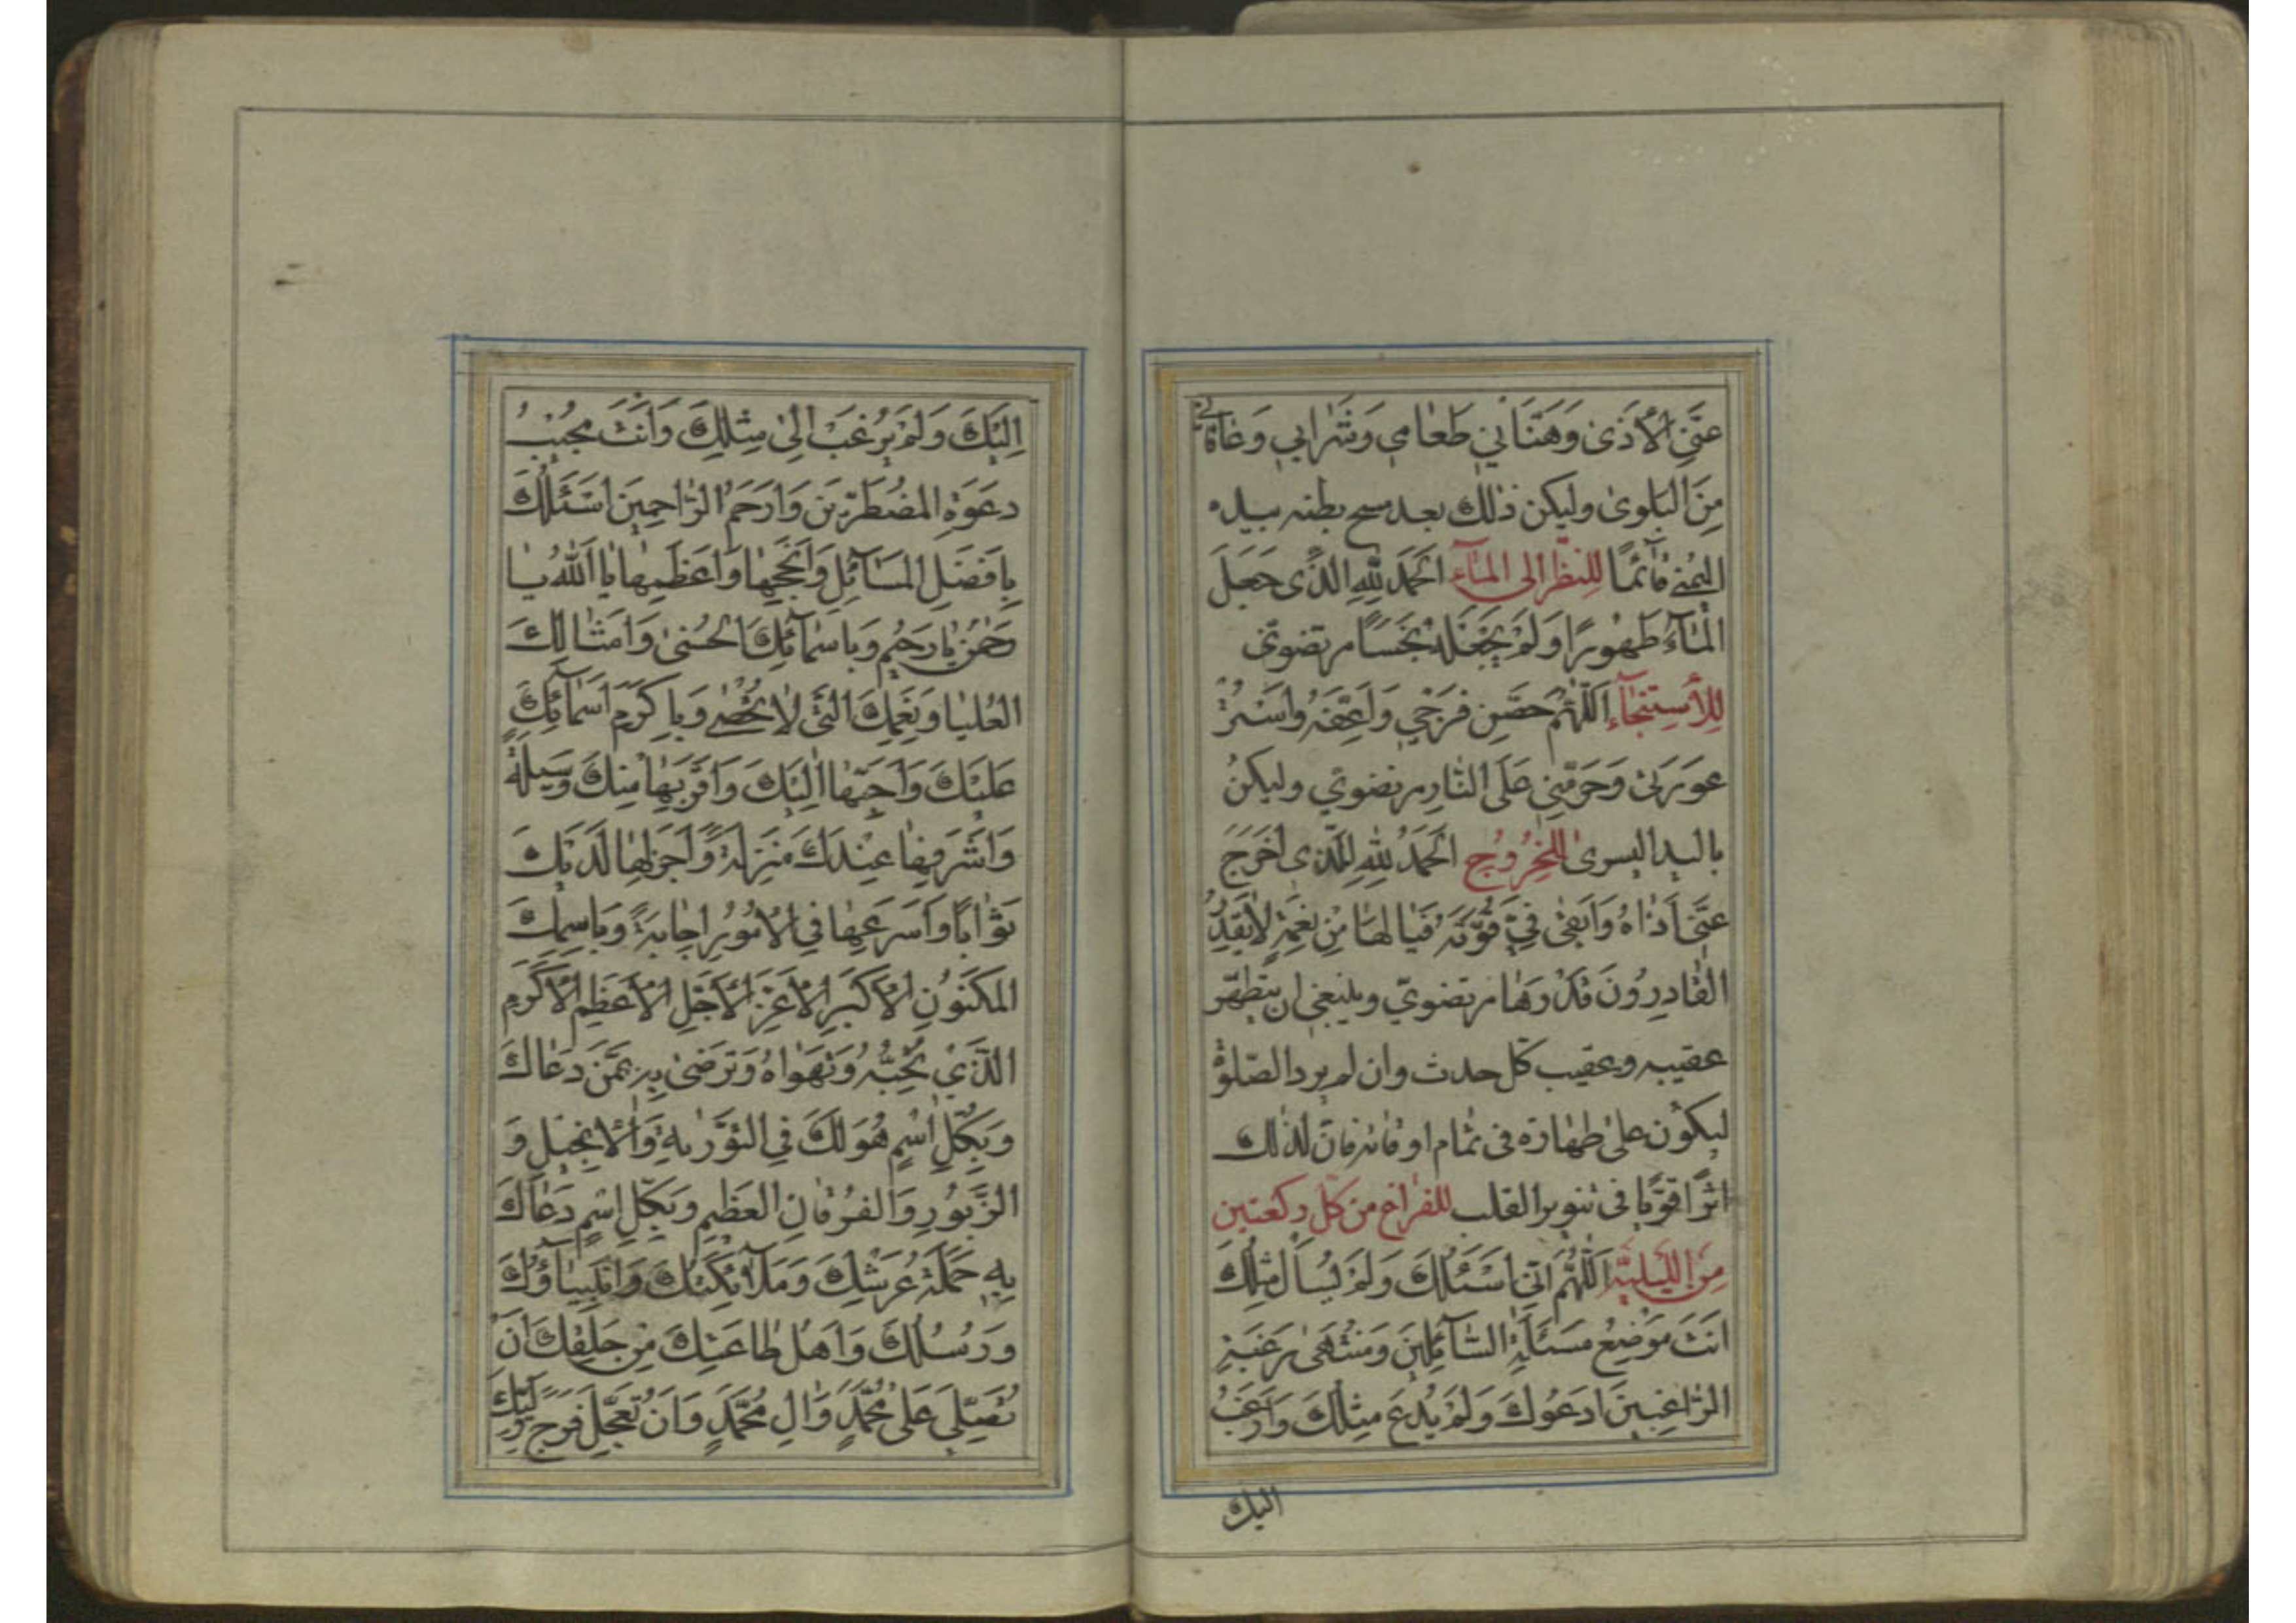 عَنِّيَ الْأَذىٰ وَهَنَّأَنِي طَعٰامِي وَشَرٰابِي وَعٰافٰانِي
مِنَ الْبَلْوىٰ وليكن ذٰلك بعد مسح بطنه بيده
اليُمنى قٰائمًا للنظر الى المٰاء اَلْحَمْدُ لِلّٰهِ الَّذِى جَعَلَ
الْمٰاءَ طَهُورًا وَلَمْ يَجْعَلْهُ نَجَسًا مرتضوىّ
لِلْاِستِنجٰاء اَللّٰهُمَّ حَصِّنْ فَرْجِي وَاَعِفَّهُ وَاسْتُرْ
عَوْرَتِى وَحَرِّمْنِي عَلَى النّٰارِ مرتضويّ وليكنْ
باليد اليسرىٰ للخُرُوج اَلْحَمْدُ لِلّٰهِ الَّذِى اَخْرَجَ
عَنِّى اَذٰاهُ وَاَبْقىٰ فِيَّ قُوَّتَهُ فَيٰا لَهٰا مِنْ نِعْمَةٍ لٰا يَقْدِرُ
الْقٰادِرُونَ قَدْرَهٰا مرتضويّ وينبغى ان يتطهّر
عقيبه وعقيب كلّ حدث وان لم يرد الصّلوة
ليكون على طهٰارة فى تمٰام اوقٰاته فانّ لذٰلك
اثرًا قويّا فى تنوير القلب للفراغ من كلّ ركعتين
مِن اللَّيليَّة اَللّٰهُمَّ اِنِّى اَسْئَلُكَ وَلَمْ يُسْأَلْ مِثْلُكَ
اَنْتَ مَوْضِعُ مَسْئَلَةِ السّٰائِلِينَ وَمُنْتَهىٰ رَغْبَةِ
الرّٰاغِبِينَ اَدْعُوكَ وَلَمْ يُدْعَ مِثْلُكَ وَاَرْغَبُ
اليك
اِلَيْكَ وَلَمْ يُرْغَبْ اِلىٰ مِثْلِكَ وَاَنْتَ مُجِيبُ
دَعْوَةِ الْمُضْطَرِّينَ وَاَرْحَمُ الرّٰاحِمِينَ اَسْئَلُكَ
بِاَفْضَلِ الْمَسٰائِلِ وَاَنْجَحِهٰا وَاَعْظَمِهٰا يٰا اَللّٰهُ يٰا
رَحْمٰنُ يٰا رَحِيمُ وَبِاَسْمٰائِكَ الْحُسْنىٰ وَاَمْثٰالِكَ
الْعُلْيٰا وَنِعَمِكَ الَّتِى لٰا تُحْصىٰ وَبِاَكْرَمِ اَسْمٰائِكَ
عَلَيْكَ وَاَحَبِّهٰا اِلَيْكَ وَاَقْرَبِهٰا مِنْكَ وَسِيلَةً
وَاَشْرَفِهٰا عِنْدَكَ مَنْزِلَةً وَاَجْزَلِهٰا لَدَيْكَ
ثَوٰابًا وَاَسْرَعِهٰا فِي الْاُمُورِ اِجٰابَةً وَبِاسْمِكَ
الْمَكْنُونِ الْاَكْبَرِ الْاَعَزِّ الْاَجَلِّ الْاَعْظَمِ الْاَكْرَمِ
الَّذِي تُحِبُّهُ وَتَهْوٰاهُ وَتَرْضىٰ بِهِ عَمَّنْ دَعٰاكَ
وَبِكُلِّ اسْمٍ هُوَ لَكَ فِي التَّوْرٰيةِ وَالْاِنْجِيلِ وَ
الزَّبُورِ وَالْفُرْقٰانِ الْعَظِيمِ وَبِكُلِّ اسْمٍ دَعٰاكَ
بِهِ حَمَلَةُ عَرْشِكَ وَمَلٰائِكَتُكَ وَاَنْبِيٰاؤُكَ
وَرُسُلُكَ وَاَهْلُ طٰاعَتِكَ مِنْ خَلْقِكَ اَنْ
تُصَلِّيَ عَلىٰ مُحَمَّدٍ وَاٰلِ مُحَمَّدٍ وَاَنْ تُعَجِّلَ فَرَجَ وَلِيِّكَ